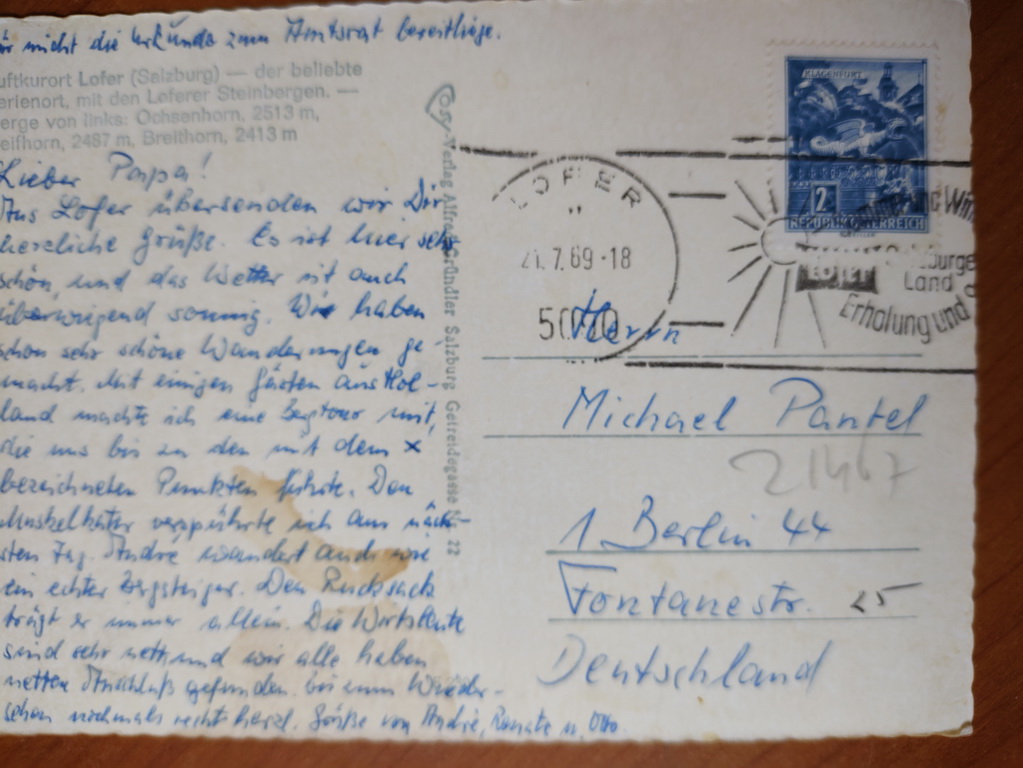 mir nicht die Urkunde zum Amtsrat bereitliege.
uftkurort Lofer (Salzburg) — der beliebte
erienort, mit den Loferer Steinbergen. —
erge von links: Ochsenhorn, 2513 m,
eifhorn, 2487 m, Breithorn, 2413 m
Lieber Papa!
Aus Lofer übersenden wir Dir
herzliche Grüße. Es ist hier sehr
schön, und das Wetter ist auch
überwiegend sonnig. Wir haben
schon sehr schöne Wanderungen ge
macht. Mit einigen Gästen aus Hol-
land machte ich eine Bergtour mit,
die uns bis zu den mit dem x
bezeichneten Punkten führte. Den
Muskelkater verspührte ich am näch-
sten Tag. André wandert auch wie
ein echter Bergsteiger. Den Rucksack
trägt er immer allein. Die Wirtsleute
sind sehr nett und wir alle haben
netten Anschluß gefunden. bis zum Wieder-
sehen nochmals recht herzl. Grüße von André, Renate u. Otto
Cosy-Verlag Alfred Gründler Salzburg Getreidegasse 22
LOFER
21.7.69-18
5090
KLAGENFURT
2
REPUBLIK ÖSTERREICH
und
LOFER
Land
Erholung und
Herrn
Michael Pantel
21467
1 Berlin 44
Fontanestr. 25
Deutschland